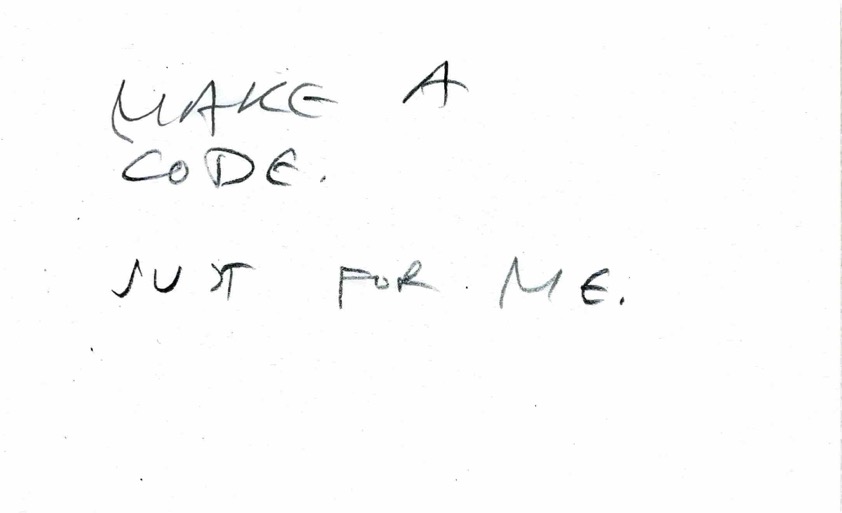 MAKE A
CODE.
JUST FOR ME.